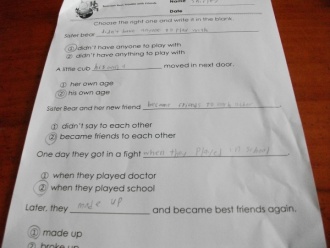 Name
Date
Choose the right one and write it in the blank.
Sister bear didn't have anyone to play with
① didn't have anyone to play with
② didn't have anything to play with
A little cub moved in next door.
① her own age
② his own age
Sister Bear and her new friend became
① didn't say to each other
② became friends to each other
One day they got in a fight when they played
① when they played doctor
② when they played school
Later, they made up and became best friends again.
① made up
② broke up